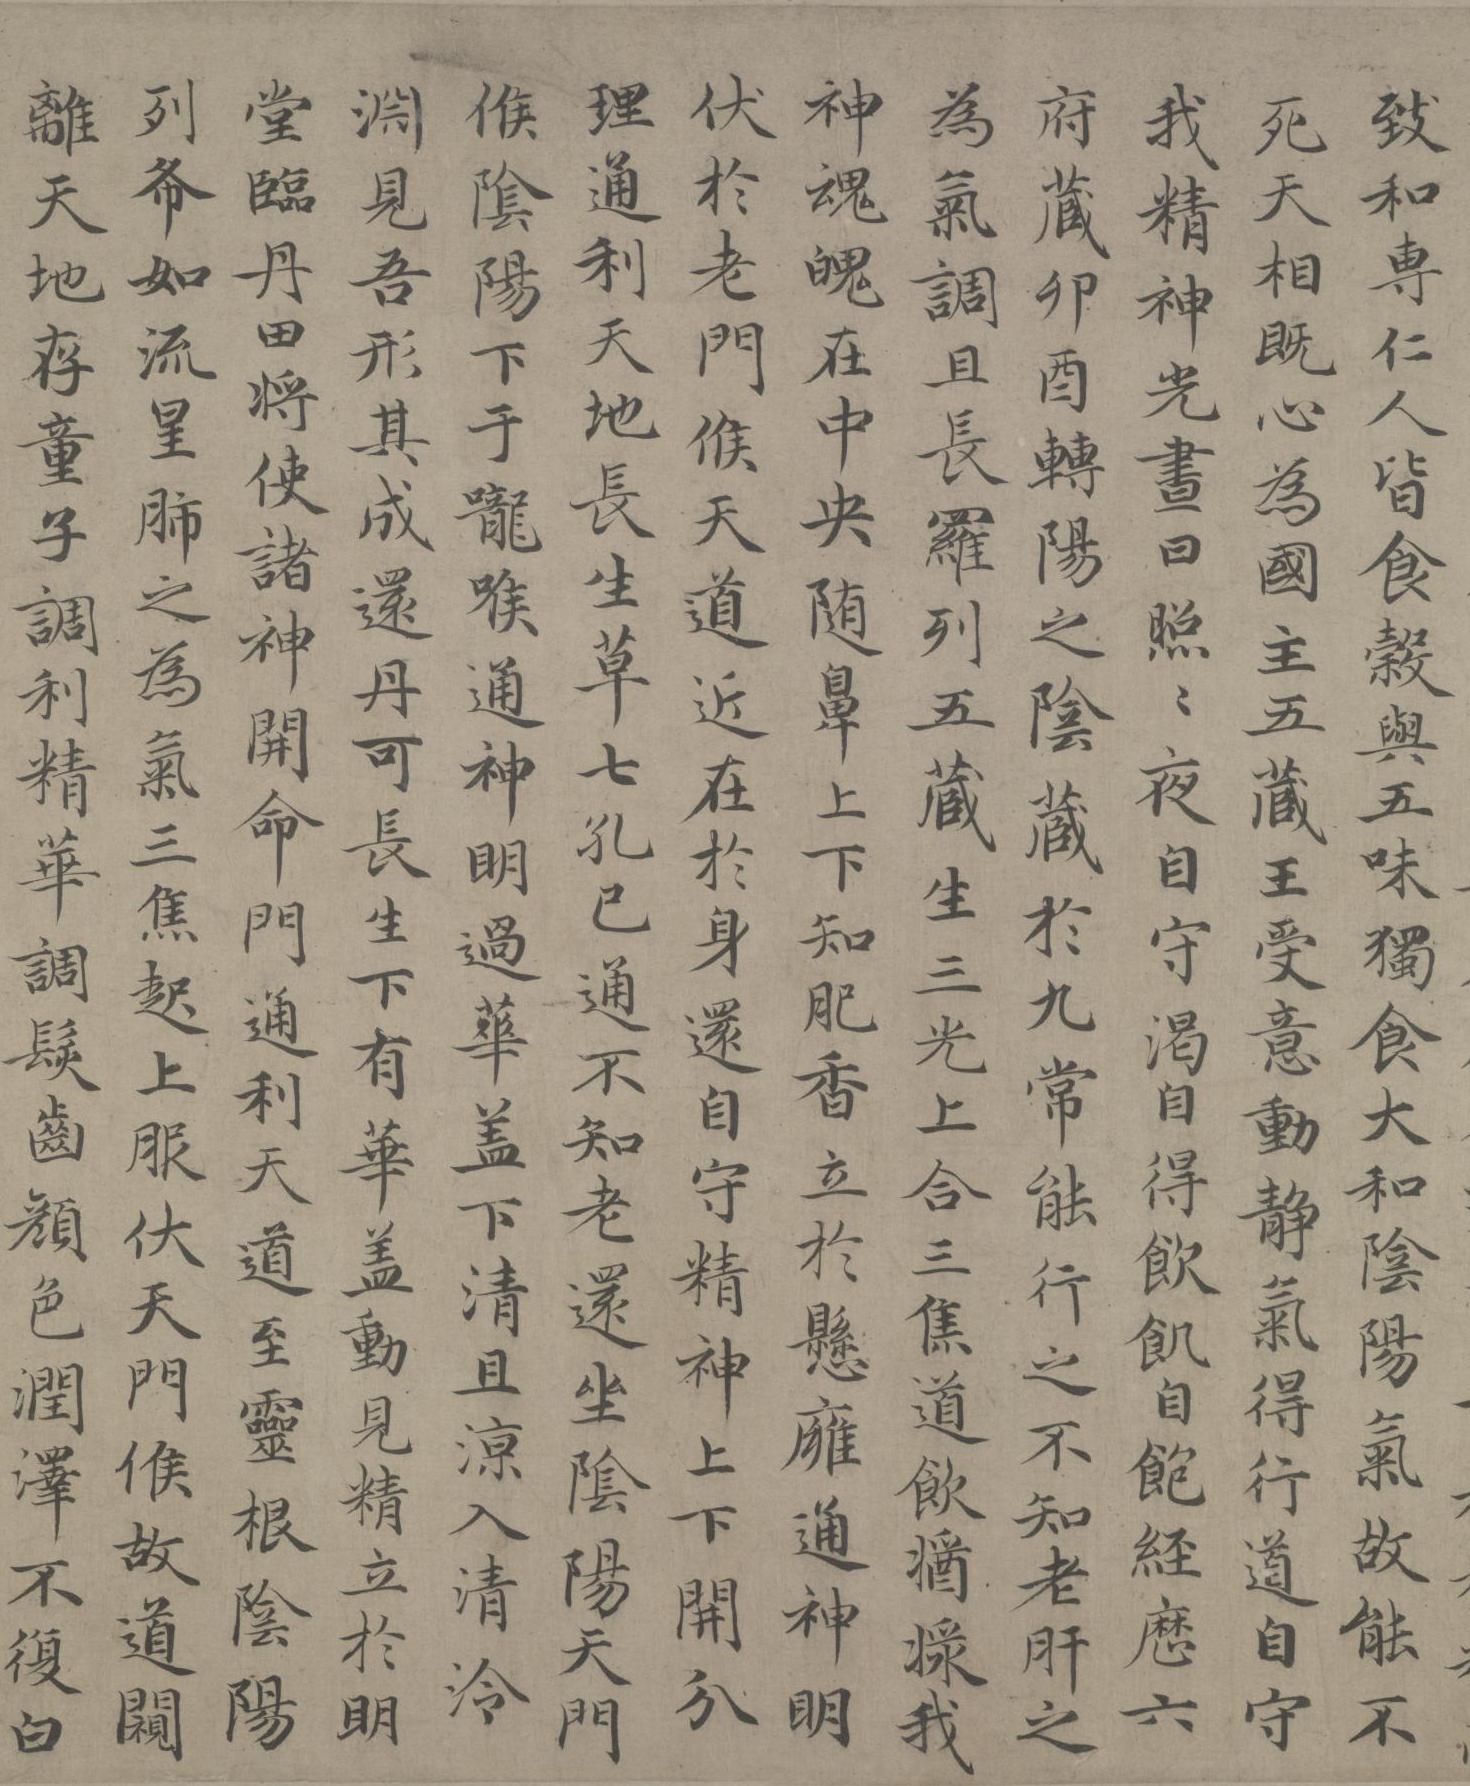 致和專仁人皆食穀與五味獨食大和陰陽氣故能不
死天相既心為國主五藏王受意動静氣得行道自守
我精神光晝日照〻夜自守渴自得飲飢自飽経歷六
府藏卯酉轉陽之陰藏於九常能行之不知老肝之
為氣調且長羅列五藏生三光上合三焦道飲𨡓𣺫我
神魂魄在中央随鼻上下知肥香立於懸癰通神明
伏於老門候天道近在於身還自守精神上下開分
理通利天地長生草七孔已通不知老還坐陰陽天門
候陰陽下于嚨喉通神明過華盖下清且涼入清泠
淵見吾形其成還丹可長生下有華盖動見精立於明
堂臨丹田将使諸神開命門通利天道至靈根陰陽
列希如流星肺之為氣三焦起上服伏天門候故道闚
離天地存童子調利精華調髮齒顏色潤澤不復白